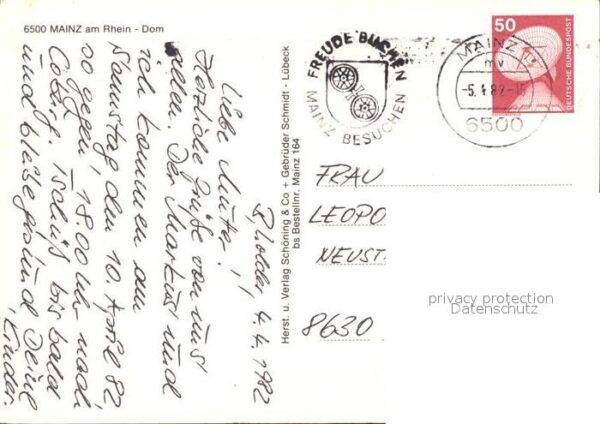 6500 MAINZ am Rhein - Dom
4.4.1982
Liebe Mutter!
Herzliche Grüße von uns
allen. Der Markus und
ich kommen am
Samstag den 10. April 82
so gegen 18.00 Uhr nach
Cobg. Tschüß bis bald
und bleibe gesund Deine
Kinder.
Herst. u. Verlag Schöning & Co + Gebrüder Schmidt - Lübeck
bs Bestellnr. Mainz 164
FREUDE BUCHEN
MAINZ BESUCHEN
MAINZ 1
mv
-5.4.82-
6500
50
DEUTSCHE BUNDESPOST
FRAU
LEOPO
NEUST.
8630
privacy protection
Datenschutz